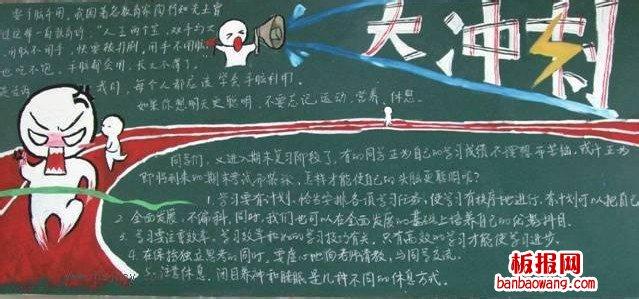 大冲刺
要手脑并用,我国著名教育家陶行知先生曾
过这样一首歌诀:"人生两个宝,双手与大
用脑不用手,快要被打倒,用手不用脑,
也吃不饱,手脑都会用,长大不得了。"
我们,每个人都应该学会手脑利用。
如果你想明天更聪明,不要忘记运动,营养,休息。
同学们,又进入期末复习阶段了,有的同学正为自己的学习成绩不理想而苦恼,或许正为
即将到来的期末考试而紧张,怎样才能使自己的头脑更聪明呢?
1.学习要有计划,恰当安排各项学习任务,使学习有秩序地进行。有计划可以把自己
2.全面发展,不偏科,同时,我们也可以在全面发展的基础上培养自己的优势科目。
3.学习要注重效率,学习效率和你的学习技巧有关,只有高效的学习才能使学习进步。
4.在保持独立思考的同时,要虚心地向老师请教,与同学交流。
5.注意休息,闭目养神和睡眠是几种不同的休息方式。
板报网
banbaowang.com